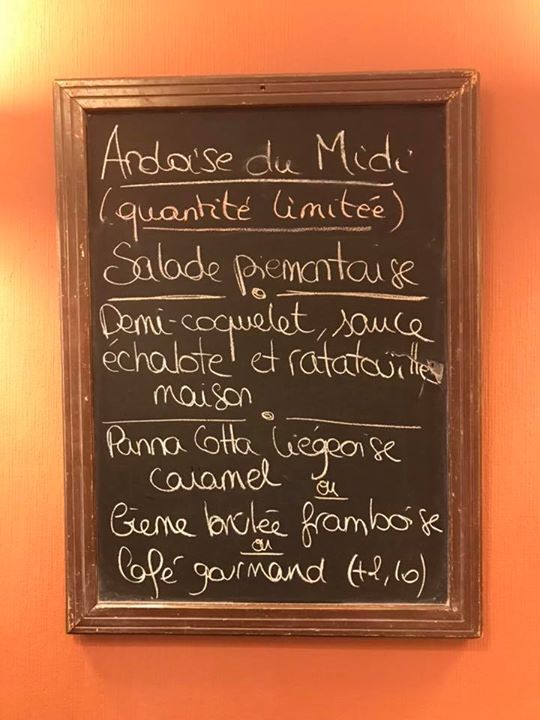 Ardoise du Midi
(quantité limitée)
Salade piemontaise
Demi-coquelet, sauce
échalote et ratatouille
maison
Panna Cotta liégeoise
caramel ou
Crème brûlée framboise
ou
Café gourmand (+2,10)